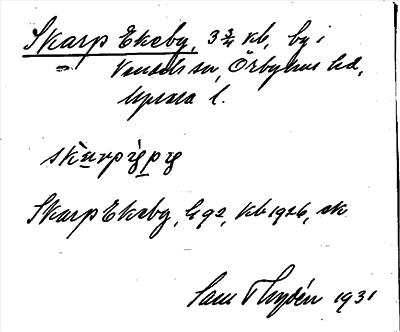 Skarp Ekeby, 3 3/4 kb, by i
Vendels sn, Örbyhus hd,
Uppsala l.
Skarp Ekeby, kb 1926, sk
Sam Thydén 1931